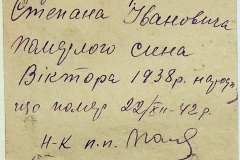 Степана Івановича
померлого сина
Віктора 1938р. народ.
що помер 22/XII-42р.
Н-К п.п.